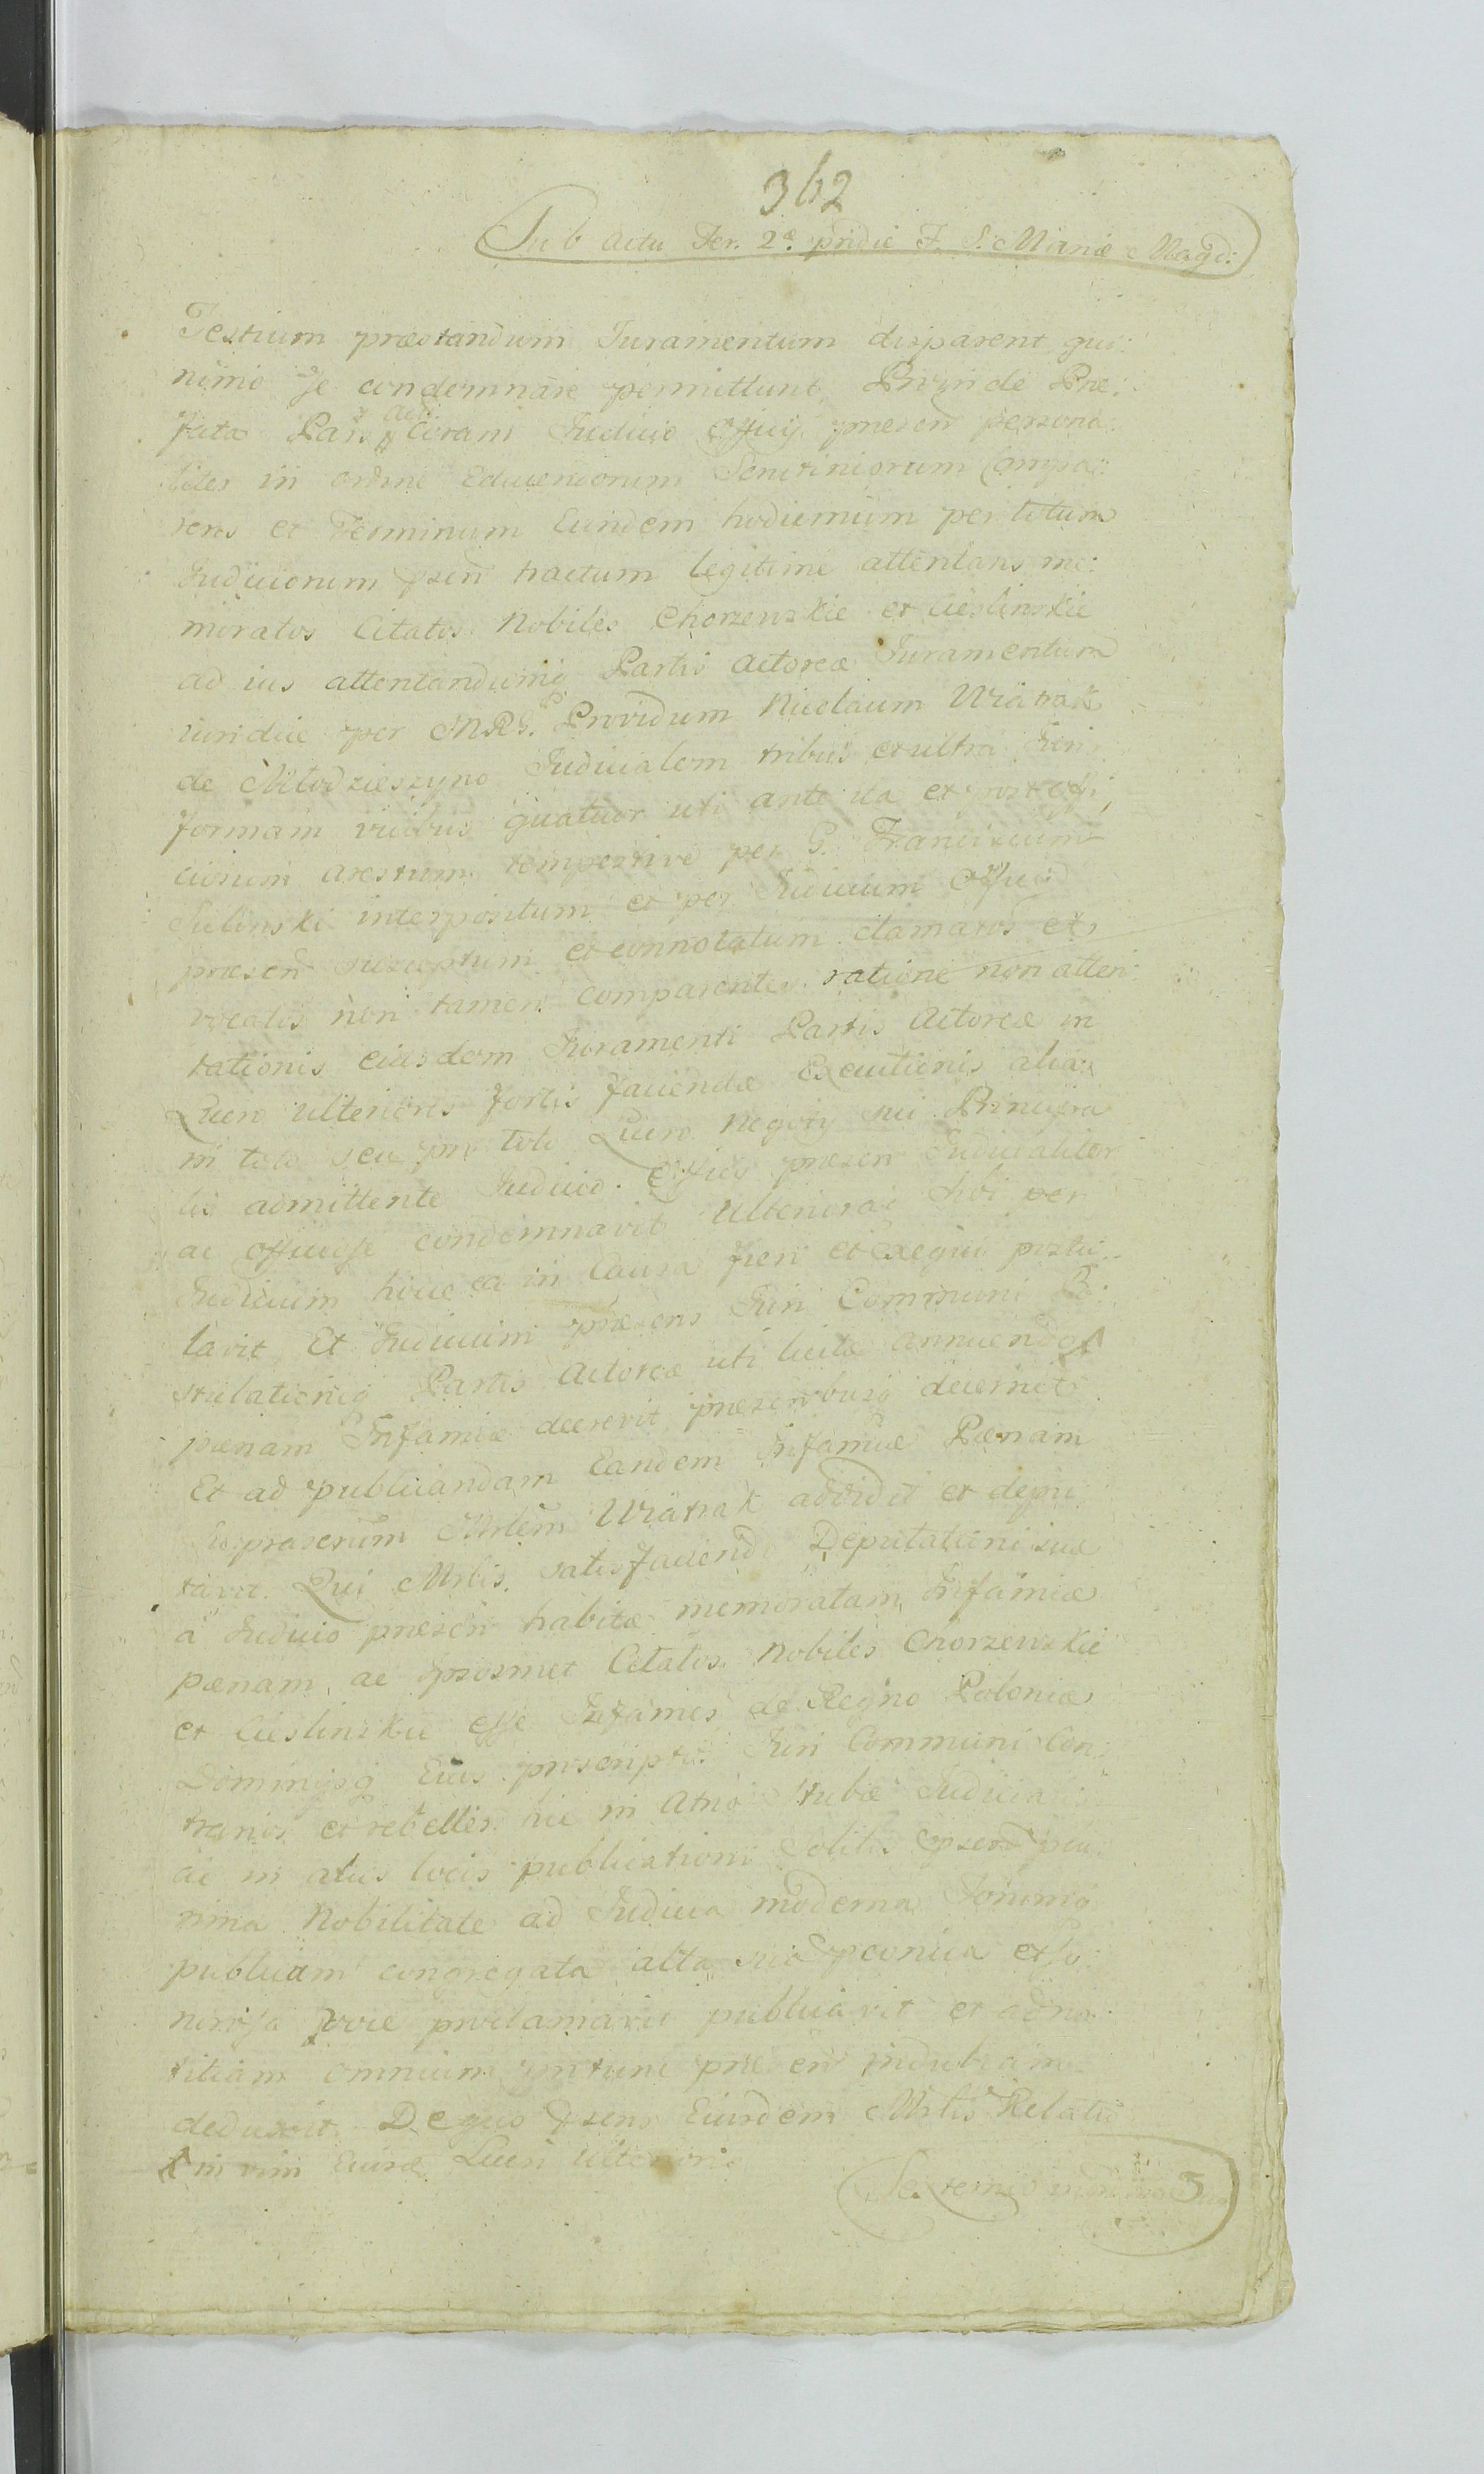 362
Sub Actu Fer. 2æ pridie F. S. Mariæ Magd:
Testium præstandum Juramentum disparent qui:
nimo se condemnare permittunt, Proinde Præ:
fata Pars Act: Coram Judicio Officij præsen persona
liter in ordine Educendorum Scrutiniorum Compa:
rens et Terminum Eundem hodiernum per totum
Judiciorum psen tractum legitime attentans me:
moratos Citatos Nobiles Chorzewskie et Cieslinskie
ad ius attentandumq Partis Actoreæ Juramentum
iuridice per MRG. Providum Nicolaum Wiatrak
de Młodzieszyno Judicialem tribus et ultra Juris
formam vicibus quatuor uti ante ita et post offi
ciosum arestum tempestive per G. Franciscum
Sulinski interpositum et per Judicium Offici
præsen susceptum et connotatum clamatos et
vocatos non tamen comparentes ratione non atten
tationis eiusdem Juramenti Partis Actoreæ in
Lucro ulterioris fortis faciendæ Executionis alias
in toto seu pro toto Lucro Negotij sui Principa
lis admittente Judicio Officij præsen Judicialiter
ac Officiose condemnavit Ulteriora sibi per
Judicium hicce ea in Causa fieri et exequi postu
lavit Et Judicium præsens Juri Communi Po:
stulationiq Partis Actoreæ uti licitæ annuendo
pænam Infamiæ decrevit præsentibusq decernit
Et ad publicandam Eandem Infamiæ Pænam
suprascrium Mrlem Wiatrak addidit et depu
tavit. Qui Mrlis satisfaciendo Deputationi suæ
a Judicio præsen habitæ memoratam Infamiæ
pænam, ac ipsosmet Citatos Nobiles Chorzewskie
et Cieslinskie esse Infames de Regno Poloniæ
Dominijsq Eius proscriptos Juri Communi Con:
trarios et rebelles hic in Atrio stubæ Judicialis
ac in alijs locis publicationi solitis psen plu
rima Nobilitate ad Judicia moderna
publicam congregata alta
sonorosa voce proclamavit publicavit et ad no
titiam omnium protunc præsen indubiam
deduxit. De quo psens Eiusdem Mrlis Relatio
in vim Euisæ Lucri Ulterioris